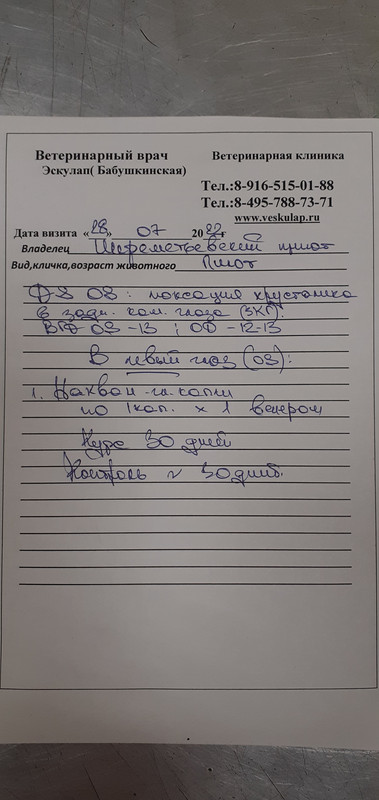 Ветеринарный врач
Эскулап( Бабушкинская)
Ветеринарная клиника
Тел.:8-916-515-01-88
Тел.:8-495-788-73-71
www.veskulap.ru
Дата визита «28» 07 2022г
Владелец Шереметьевский приют
Вид,кличка,возраст животного Пилот
D-S OS: люксация хрусталика
в задн. кам. глаза (ЗКГ).
ВГД OS -13 ; OD -12-13
В левый глаз (OS):
1. гл. капли
по 1кап. x 1 вечером
Курс 30 дней
Контроль ~ 30 дней.